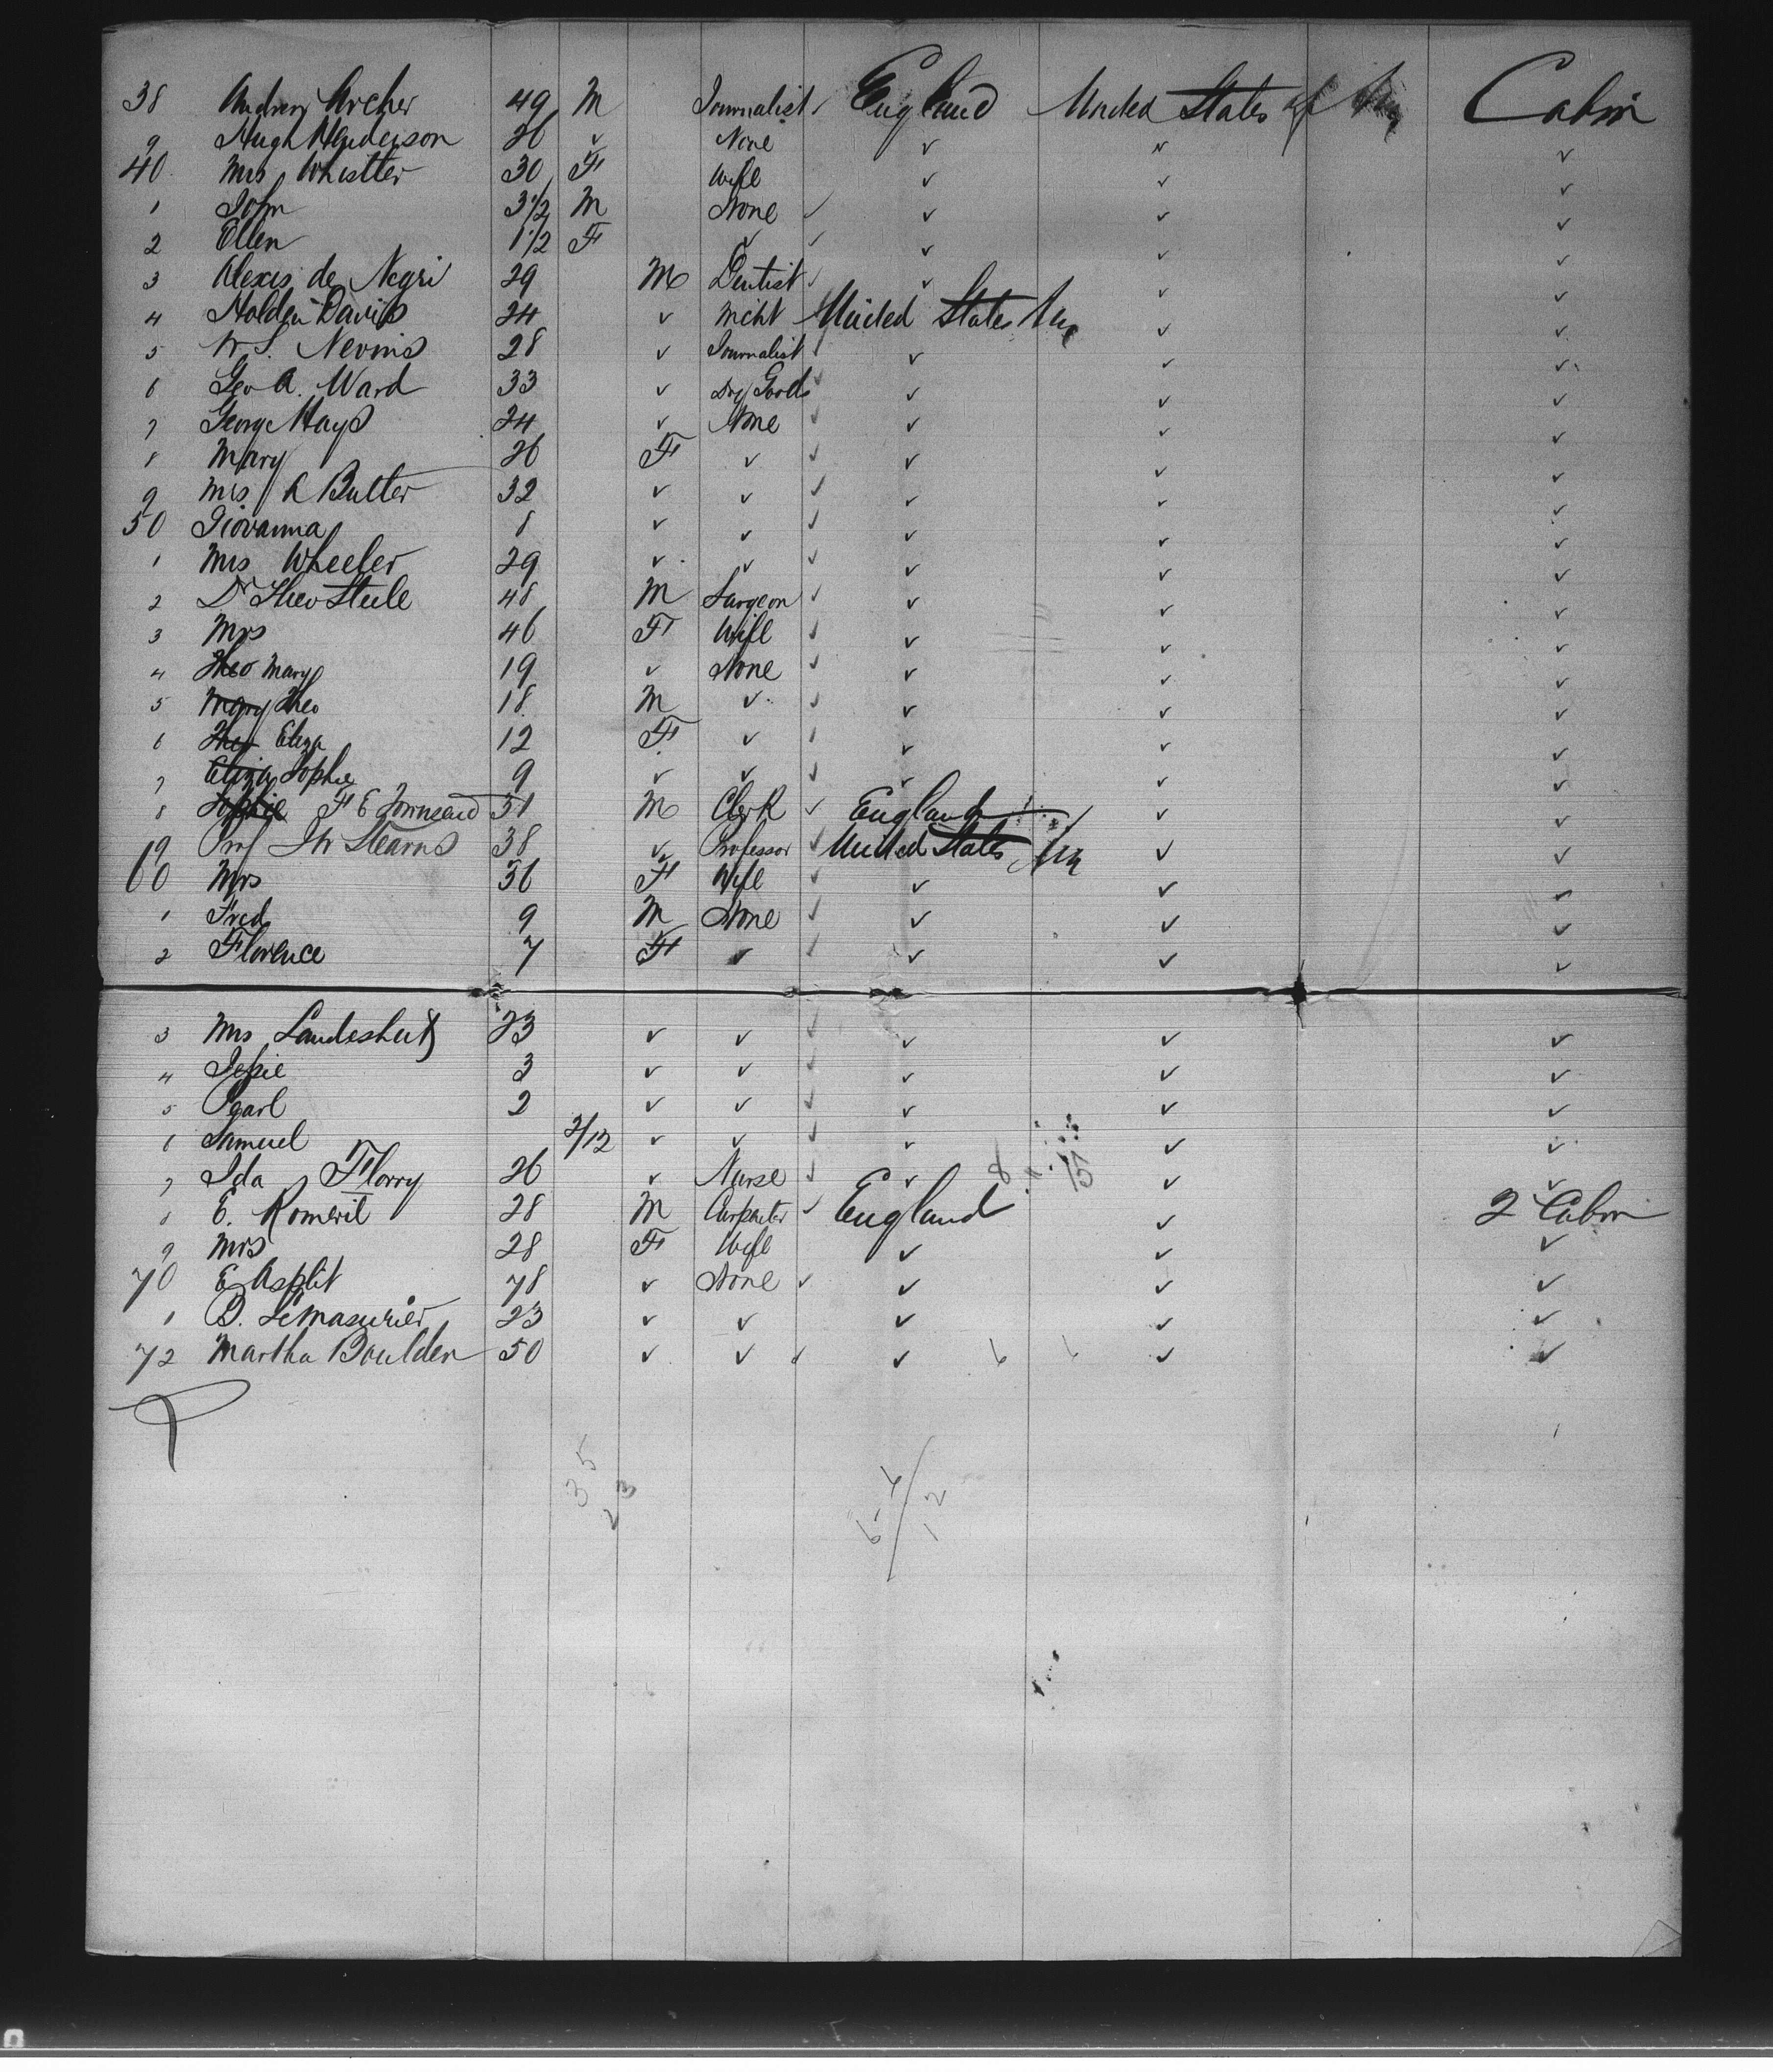 38 Andrew Archer 49 M Journalist ✓ England United States of Am Cabin
9 Hugh Henderson 26 ✓ None ✓ ✓ ✓
40 Mrs Whistler 30 F Wife ✓ ✓ ✓
1 John 3 1/2 M None ✓ ✓ ✓ ✓
2 Ellen 1 1/2 F ✓ ✓ ✓ ✓ ✓
3 Alexis de Negri 29 M Dentist ✓ ✓ ✓ ✓
4 Holden Davis 24 ✓ Mcht United States Am ✓ ✓
5 W S. Nevins 28 ✓ Journalist ✓ ✓ ✓ ✓
6 Geo A. Ward 33 ✓ Dry Goods ✓ ✓ ✓ ✓
7 George Hays 24 ✓ None ✓ ✓ ✓ ✓
8 Mary 26 F ✓ ✓ ✓ ✓ ✓
9 Mrs A Butler 32 ✓ ✓ ✓ ✓ ✓ ✓
50 Giovanna 8 ✓ ✓ ✓ ✓ ✓ ✓
1 Mrs Wheeler 29 ✓ ✓ ✓ ✓ ✓ ✓
2 Dr Theo Steele 48 M Surgeon ✓ ✓ ✓ ✓
3 Mrs 46 F Wife ✓ ✓ ✓ ✓
4 Theo Mary 19 ✓ None ✓ ✓ ✓ ✓
5 Mary Theo 18 M ✓ ✓ ✓ ✓ ✓
6 Theo Eliza 12 F ✓ ✓ ✓ ✓ ✓
7 Eliza Sophie 9 ✓ ✓ ✓ ✓ ✓ ✓
8 Sophie F E Townsend 51 M Clerk ✓ England ✓ ✓
19 Prof Stearns 38 ✓ Professor ✓ United States Am ✓ ✓
60 Mrs 36 F Wife ✓ ✓ ✓ ✓
1 Fred 9 M None ✓ ✓ ✓ ✓
2 Florence 7 F ✓ ✓ ✓ ✓ ✓
3 Mrs Landeshut 23 ✓ ✓ ✓ ✓ ✓ ✓
4 Jessie 3 ✓ ✓ ✓ ✓ ✓ ✓
5 Pearl 2 ✓ ✓ ✓ ✓ ✓ ✓
6 Samuel 2/12 ✓ ✓ ✓ ✓ ✓ ✓
7 Ida Florry 26 ✓ Nurse ✓ ✓ 8 15 ✓ ✓
8 E. Romeril 28 M Carpenter ✓ England ✓ 2 Cabin
9 Mrs 28 F Wife ✓ ✓ ✓
70 E Asplit 78 ✓ None ✓ ✓ ✓ ✓
1 D. LeMasurier 23 ✓ ✓ ✓ ✓ ✓
72 Martha Boulden 50 ✓ ✓ ✓ ✓ 6 ✓ ✓
35
23